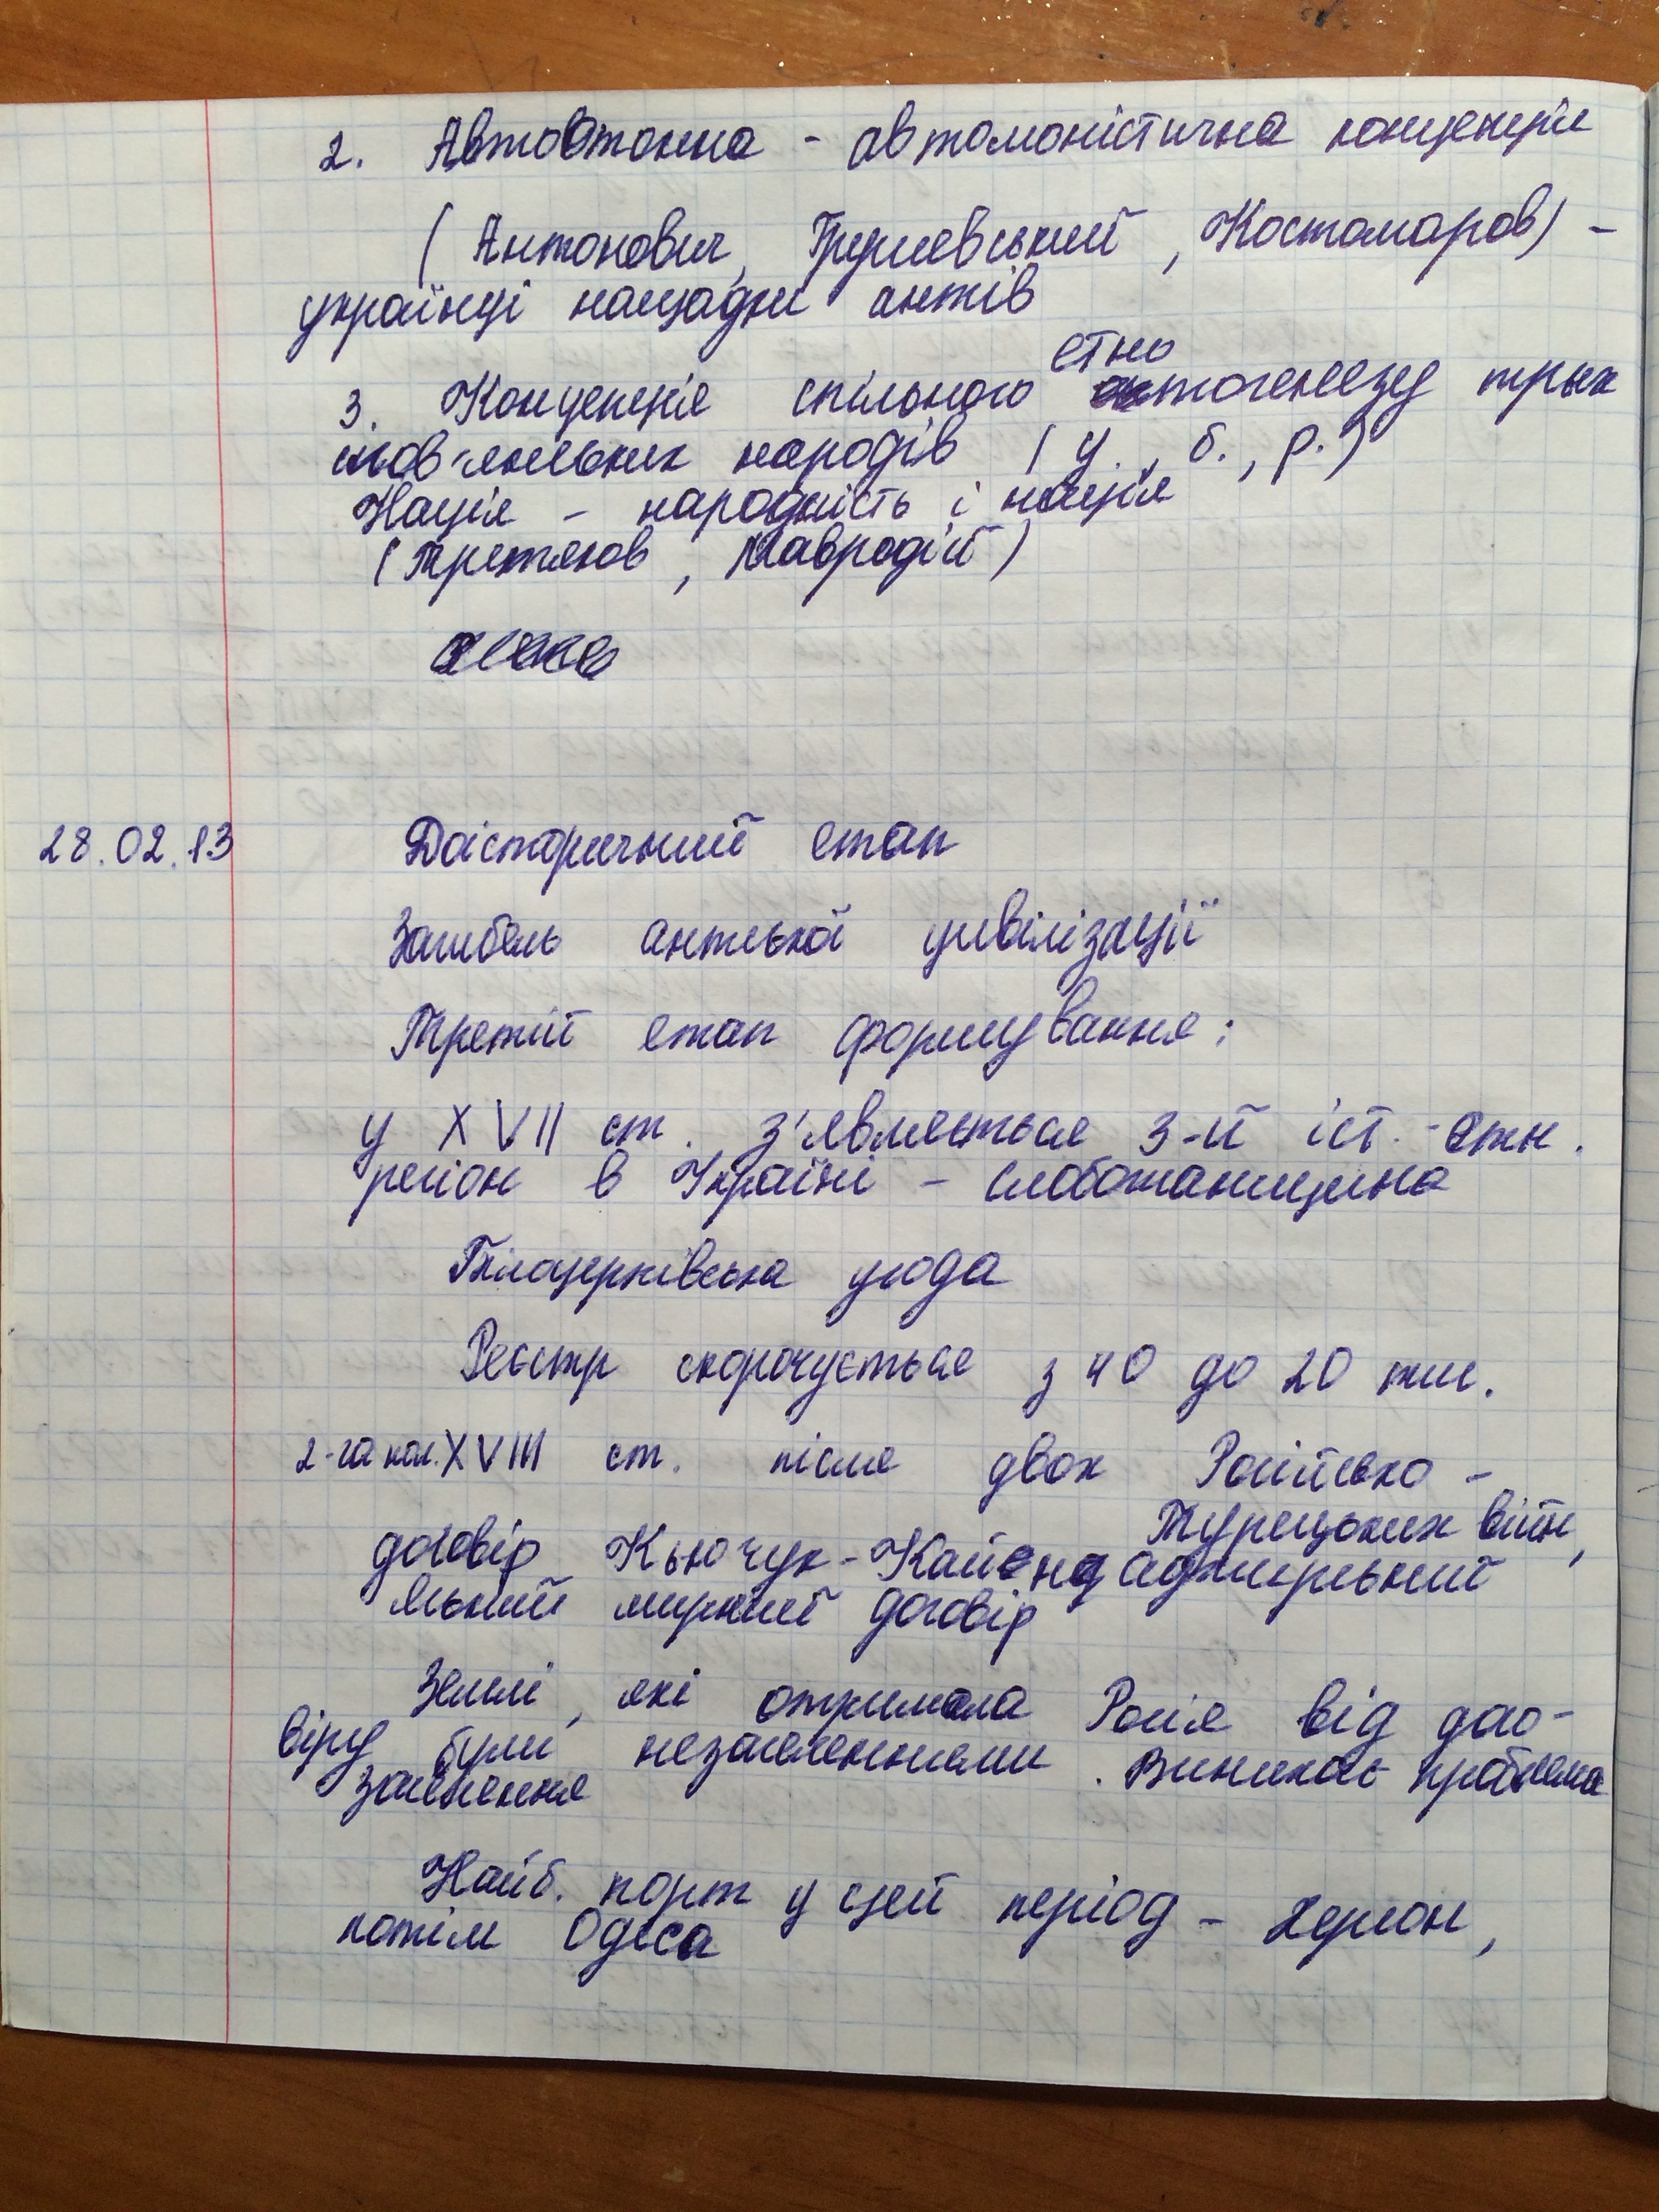 2. Автовтонна - автомоністична концепція
( Антонович, Грушевський, Костомаров) -
українці нащадки антів
етно
3. Концепція спільного тогенезу трьох
слов'янських народів ( у., б., р.)
Нація - народність і нація
(Третяков, Мавродій)
28.02.13 Доісторичний етап
Загибель антської цивілізації
Третій етап формування:
у XVII ст. з'являється 3-й іст.-етн.
регіон в Україні - Слобожанщина
Білоцерківська угода
Реєстр скорочується з 40 до 20 тис.
2-га пол. XVIII ст. після двох Російсько-
Турецьких війн,
договір Кьючук-Кайенд аджирський
яський мирний договір
Землі, які отримала Росія від дого-
віру були незаселенними. Виникає проблема
заселення
Найб. порт у цей період - Херсон,
потім Одеса